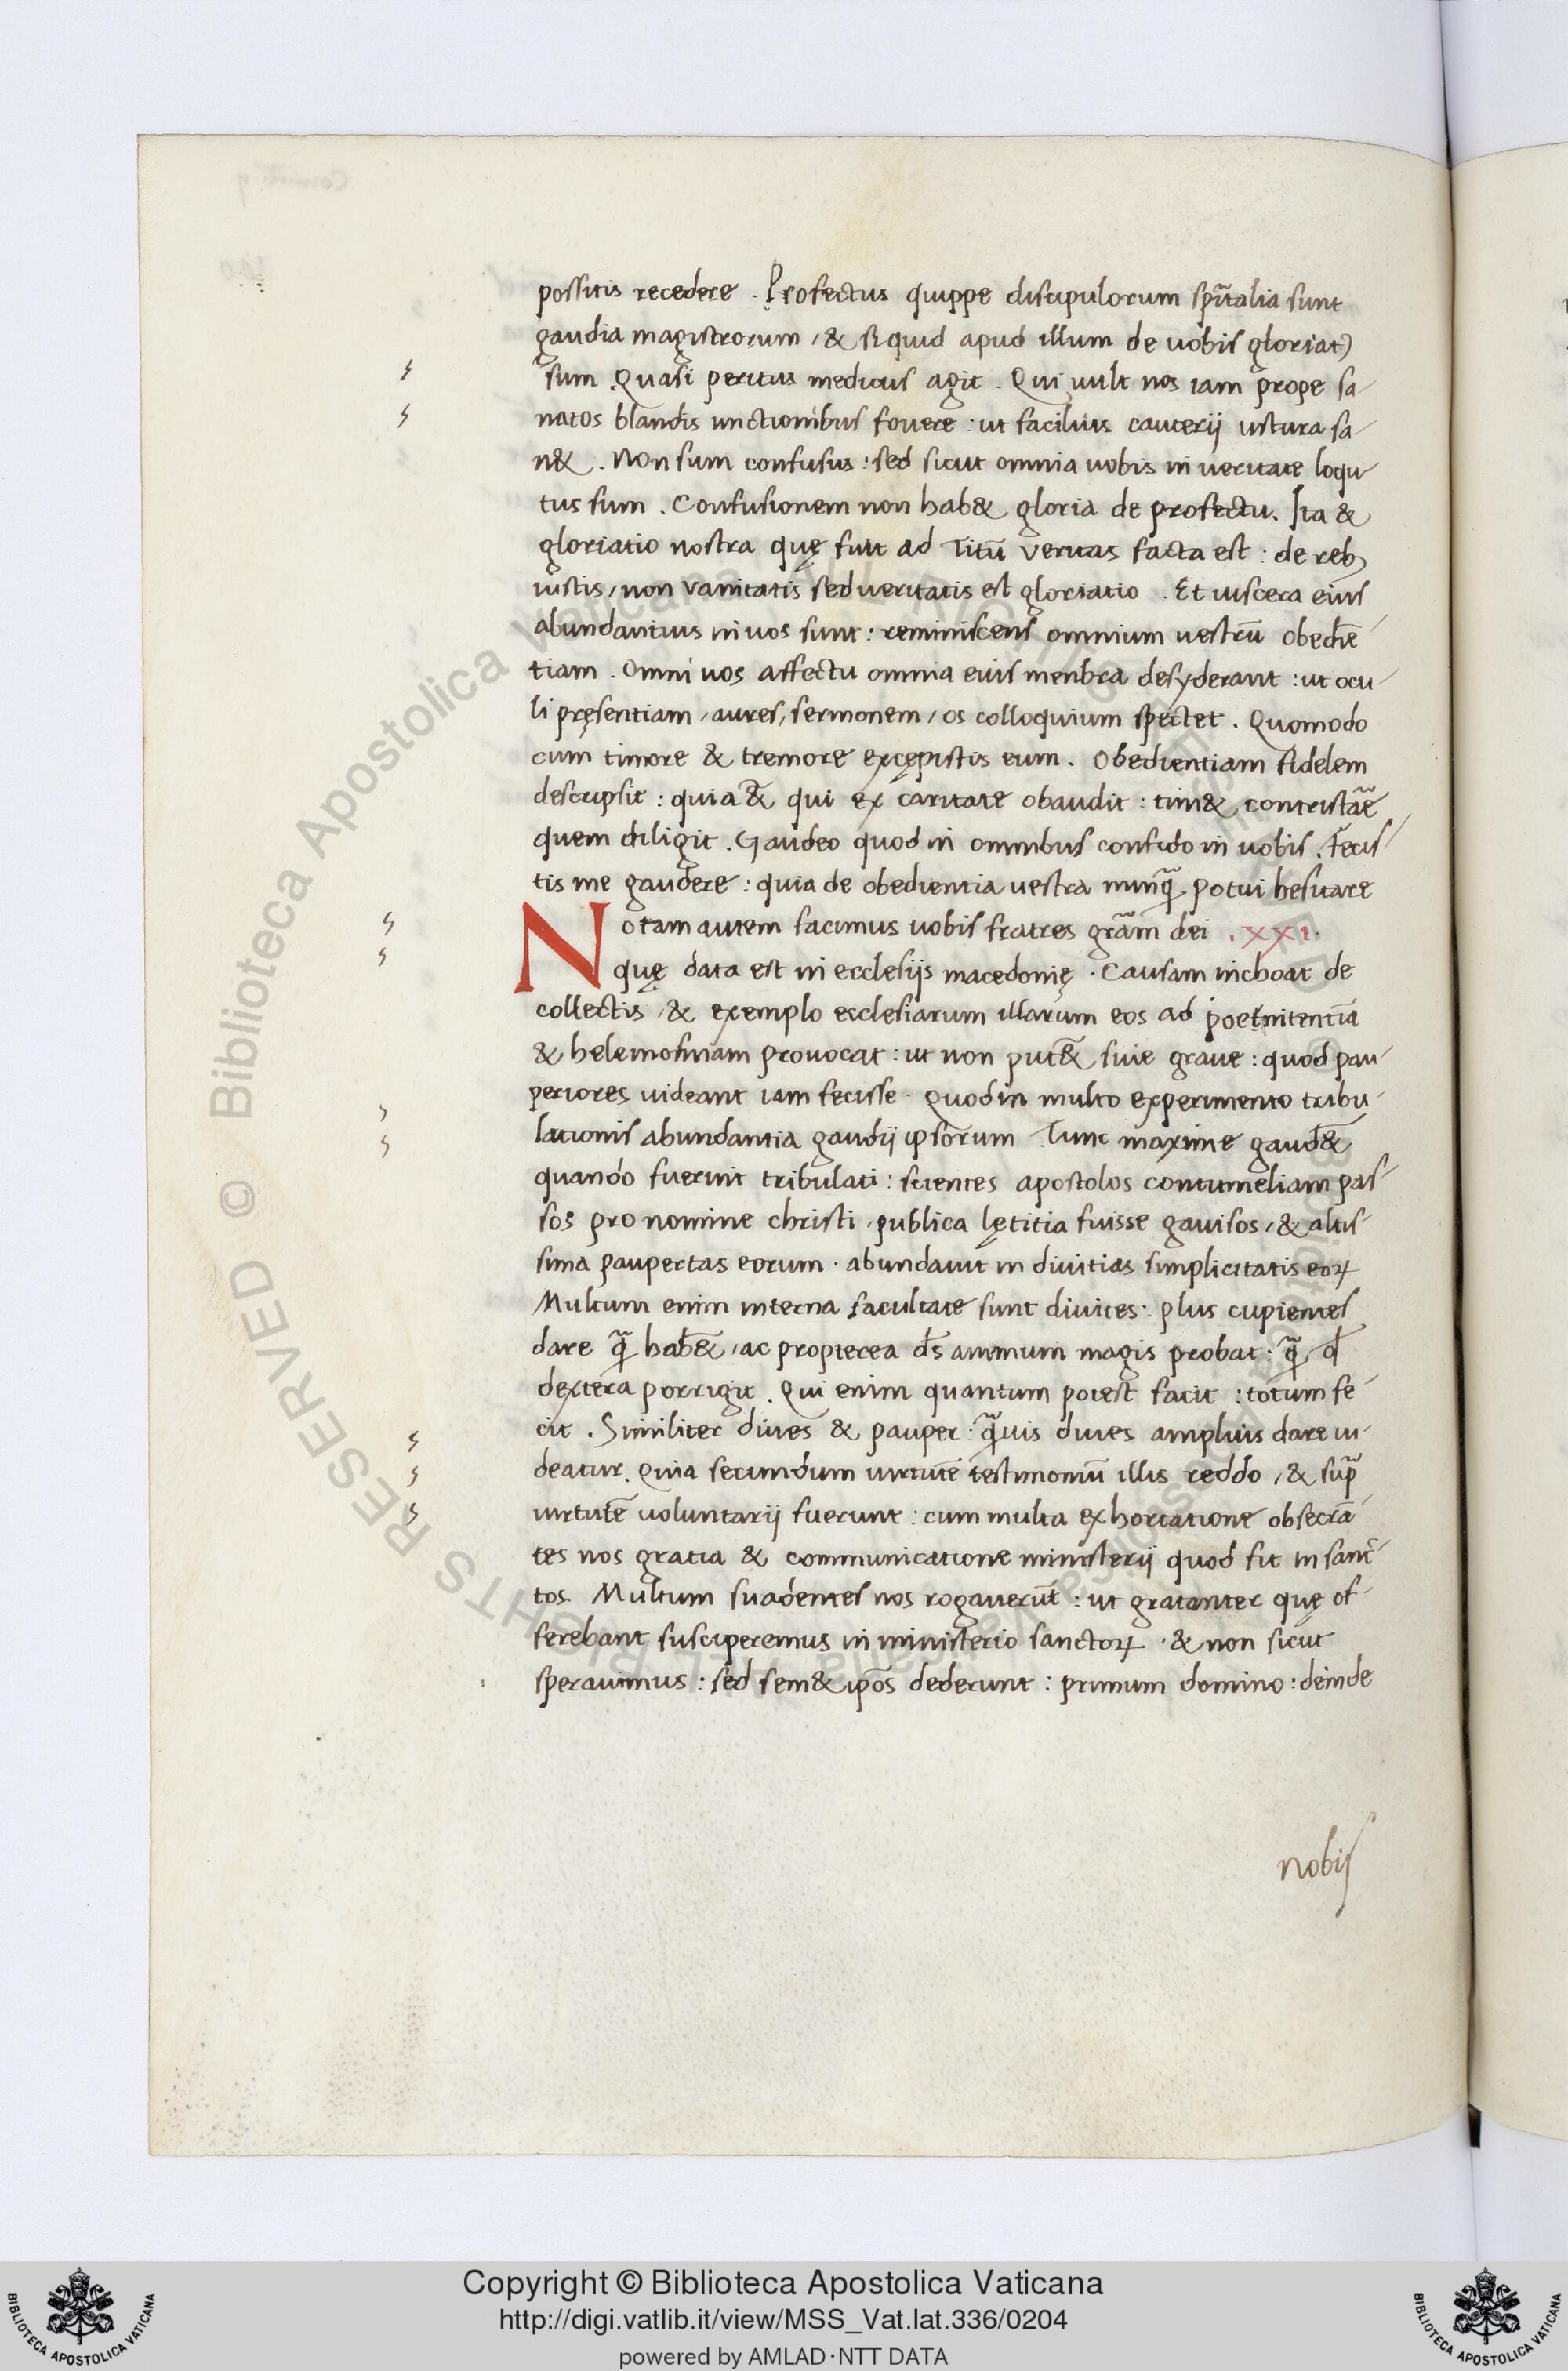 possitis recedere . Profectus quippe discipulorum spūalia sunt
gaudia magistrorum / & si quid apud illum de uobis gloriat᷒
sum . Quasi peritus medicus agit . Qui uult nos iam prope sa-
natos blandis unctionibus fouere : ut facilius cauterij ustura sa-
n& . Non sum confusus : sed sicut omnia uobis in veritate loqu-
tus sum . Confusionem non hab& gloria de profectu . Ita &
gloriatio nostra quę fuit ad Titū veritas facta est : de reb;
iustis / non vanitatis sed veritatis est gloriatio . Et uiscera eius
abundantius in uos sunt : reminiscens omnium uestrū obediē-
tiam . Omni uos affectu omnia eius menbra desyderant : ut ocu-
li pręsentiam / aures / sermonem / os colloquium spectet . Quomodo
cum timore & tremore excępistis eum . Obedientiam fidelem
descripsit : quia & qui ex caritate obaudit : tim& contristare
quem diligit . Gaudeo quod in omnibus confido in uobis . Fecis-
tis me gaudere : quia de obedientia uestra nunq̄ potui hesitare
Notam autem facimus uobis fratres grām dei . XXI .
quę data est in ecclesijs macedonię . Causam inchoat de
collectis / & exemplo ecclesiarum illarum eos ad poenitentiā
& helemosinam prouocat : ut non put& suie graue : quod pau-
periores uideant iam fecisse . Quod in multo experimento tribu-
lationis abundantia gaudij ipsorum Tunc maxime gaud&
quando fuerint tribulati : scientes apostolos contumeliam pas-
sos pro nomine christi / publica lętitia fuisse gauisos / & altis-
sima paupertas eorum . abundauit in diuitias simplicitatis eoꝝ
Multum enim interna facultate sunt diuites : plus cupientes
dare q̄ hab& / ac propterea ds̄ animum magis probat : q̄ qđ
dextera porrigit . Qui enim quantum potest facit : totum fe-
cit . Similiter diues & pauper : q̄uis diues amplius dare ui-
deatur . Quia secundum uirtutē testimoniū illis reddo / & sup̄
uirtutē uoluntarij fuerunt : cum multa exhortatione obsecrā-
tes nos gratia & communicatione ministerij quod fit in sanc-
tos Multum suadentes nos rogauerūt : ut gratanter quę of-
ferebant susciperemus in ministerio sanctoꝝ . & non sicut
sperauimus : sed sem& ipōs dederunt : primum domino : deinde
nobis
Copyright © Biblioteca Apostolica Vaticana
http://digi.vatlib.it/view/MSS_Vat.lat.336/0204
powered by AMLAD·NTT DATA